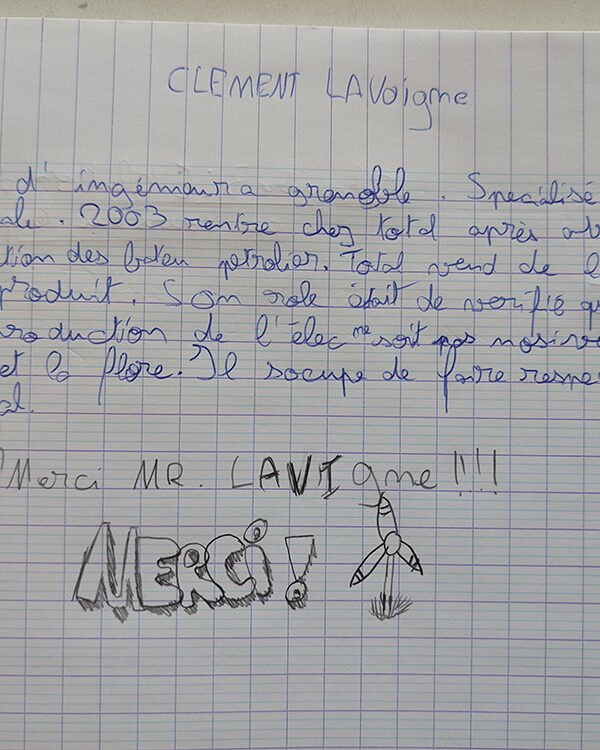 CLEMENT LAVoigne
d'ingénieur a grenoble. Specialisé
ale. 2003 rentre chez total après
tion des bateu petrolier. Total vend de l
produit. Son role était de verifié qu
roduction de l'élec ne soit pas nosive
et la flore. Il socupe de faire respe
al.
Merci MR. LAVIgne!!!
MERCi!